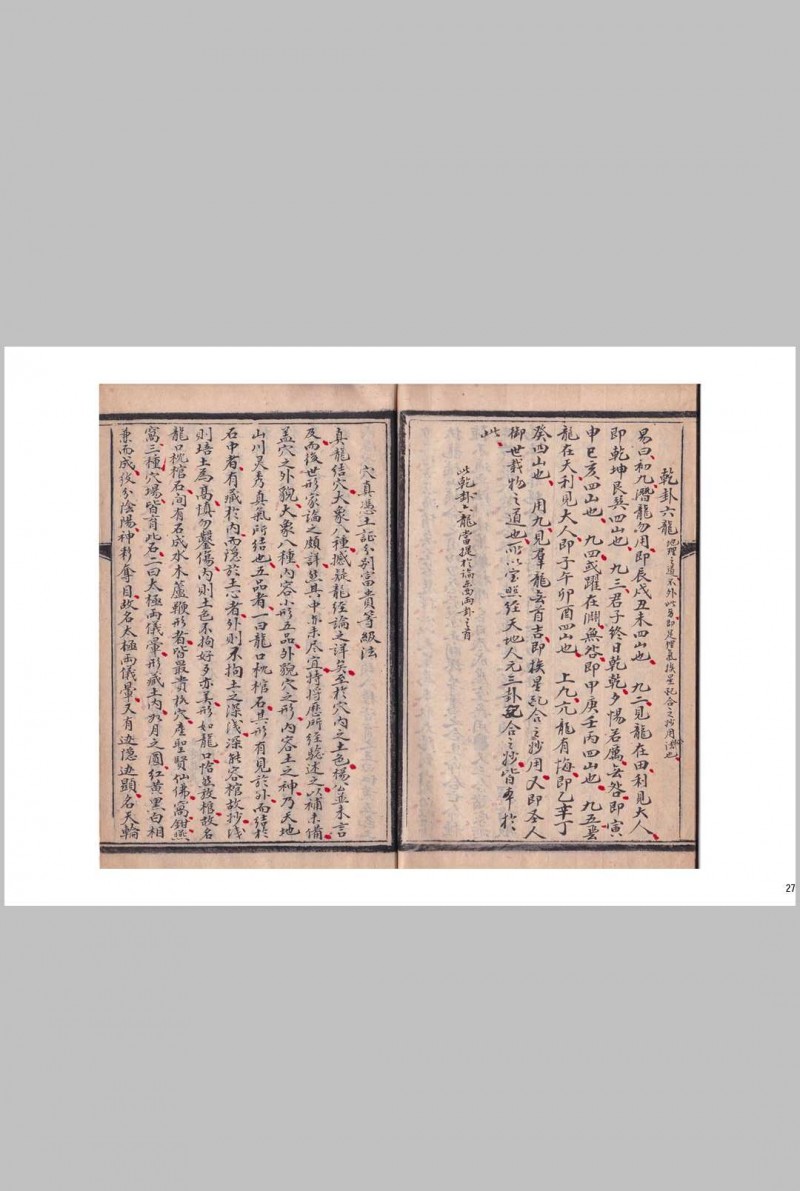 乾卦六龍 地理之道不外此易即是理氣挨星配合之妙用訣也
易曰初九潛龍勿用即辰戌丑未四山也 九二見龍在田利見大人
即乾坤艮巽四山也 九三君子終日乾乾夕惕若厲無咎即寅
申巳亥四山也 九四或躍在淵無咎即甲庚壬丙四山也 九五蜚
龍在天利見大人即子午卯酉四山也 上九亢龍有悔即乙辛丁
癸四山也 用九見羣龍無首吉即挨星配合之妙用又即圣人
御世載物之道也所以宝照經天地人元三卦配合之妙皆本於
此
此乾卦六龍當提於論兩卦之首
穴真憑土証分別富貴等級法
真龍結穴大象八種撼疑龍經論之詳矣至於穴内之土色楊公並未言
及而後世形家論之頗詳然其中亦未尽宜特將歷所經驗述之以補未備
盖穴之外貌大象八種内容小形五品外貌穴之形内容土之神乃天地
山川灵秀真氣所結也五品者一曰龍口枕棺石其形有見於外而結於
石中者有藏於内而隠於土心者外則不拘土之深浅深能容棺故抄浅
則培土為高慎勿鑿傷内則土色不拘好歹亦美形如龍口恰好放棺故名
龍口枕棺石间有石成水木蘆鞭形者皆最貴核穴產聖賢仙佛窩鉗燕
窩三種穴場皆有此石二曰太極兩儀暈形藏土内如月之圓紅黄黑白相
兼而成紋分陰陽神彩奪目故名太極兩儀暈又有边隠边顕名天輪